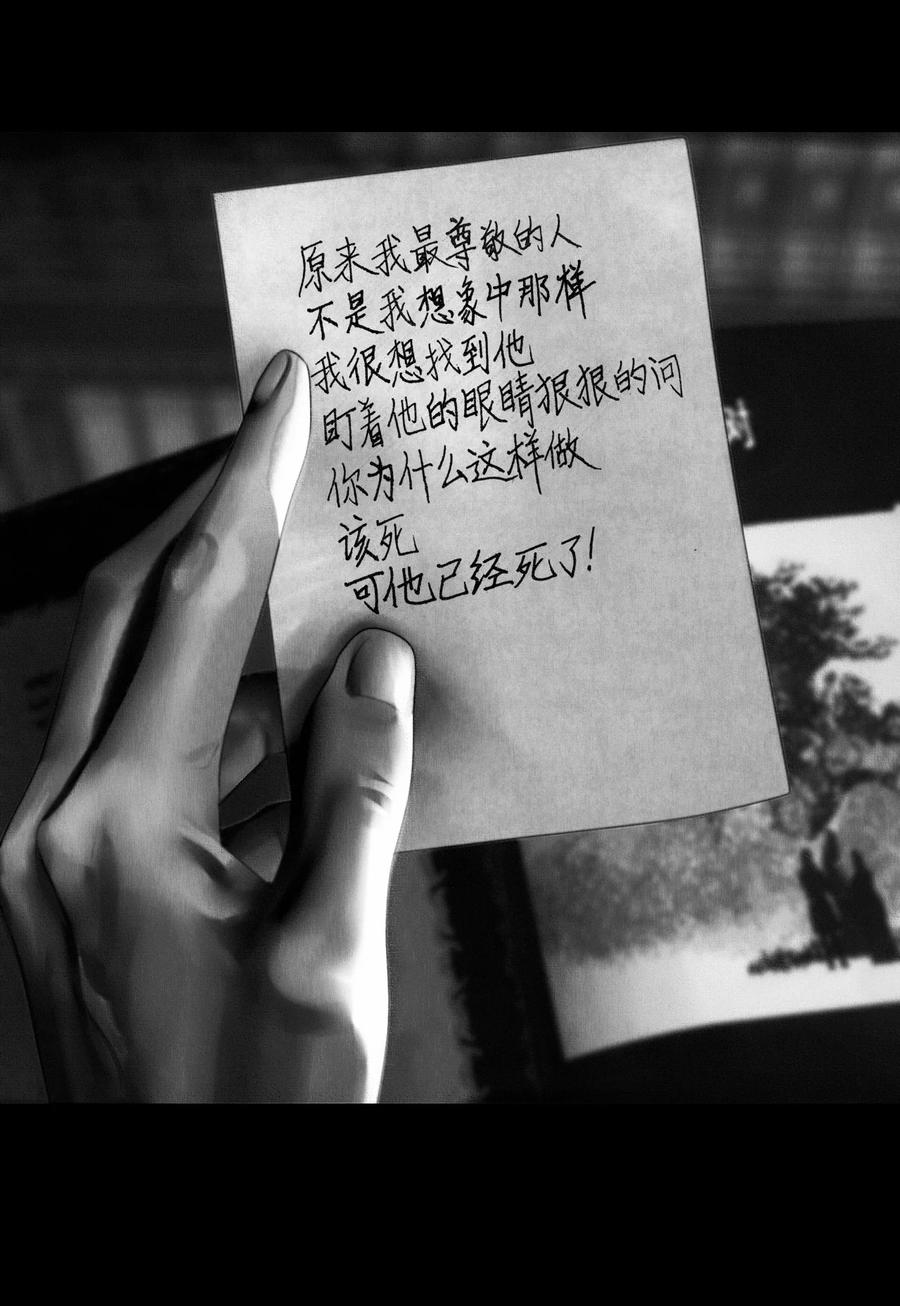 原来我最尊敬的人
不是我想象中那样
我很想找到他
盯着他的眼睛狠狠的问
你为什么这样做
该死
可他已经死了!